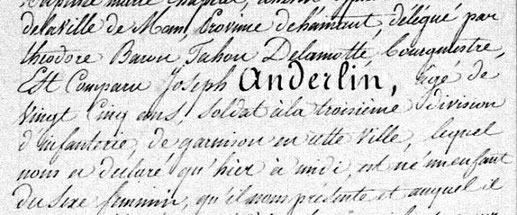 de la ville de Mons, Province de hainaut, délégué par
théodore Baron Tahon Delamotte, bourgmestre,
Est Comparu Joseph Anderlin, agé de
Vingt Cinq ans, soldat à la troisième division
d'infanterie, de garnison en cette Ville, lequel
nous a declaré qu'hier à midi, est né un enfant
du sexe feminin, qu'il nous présente et auquel il